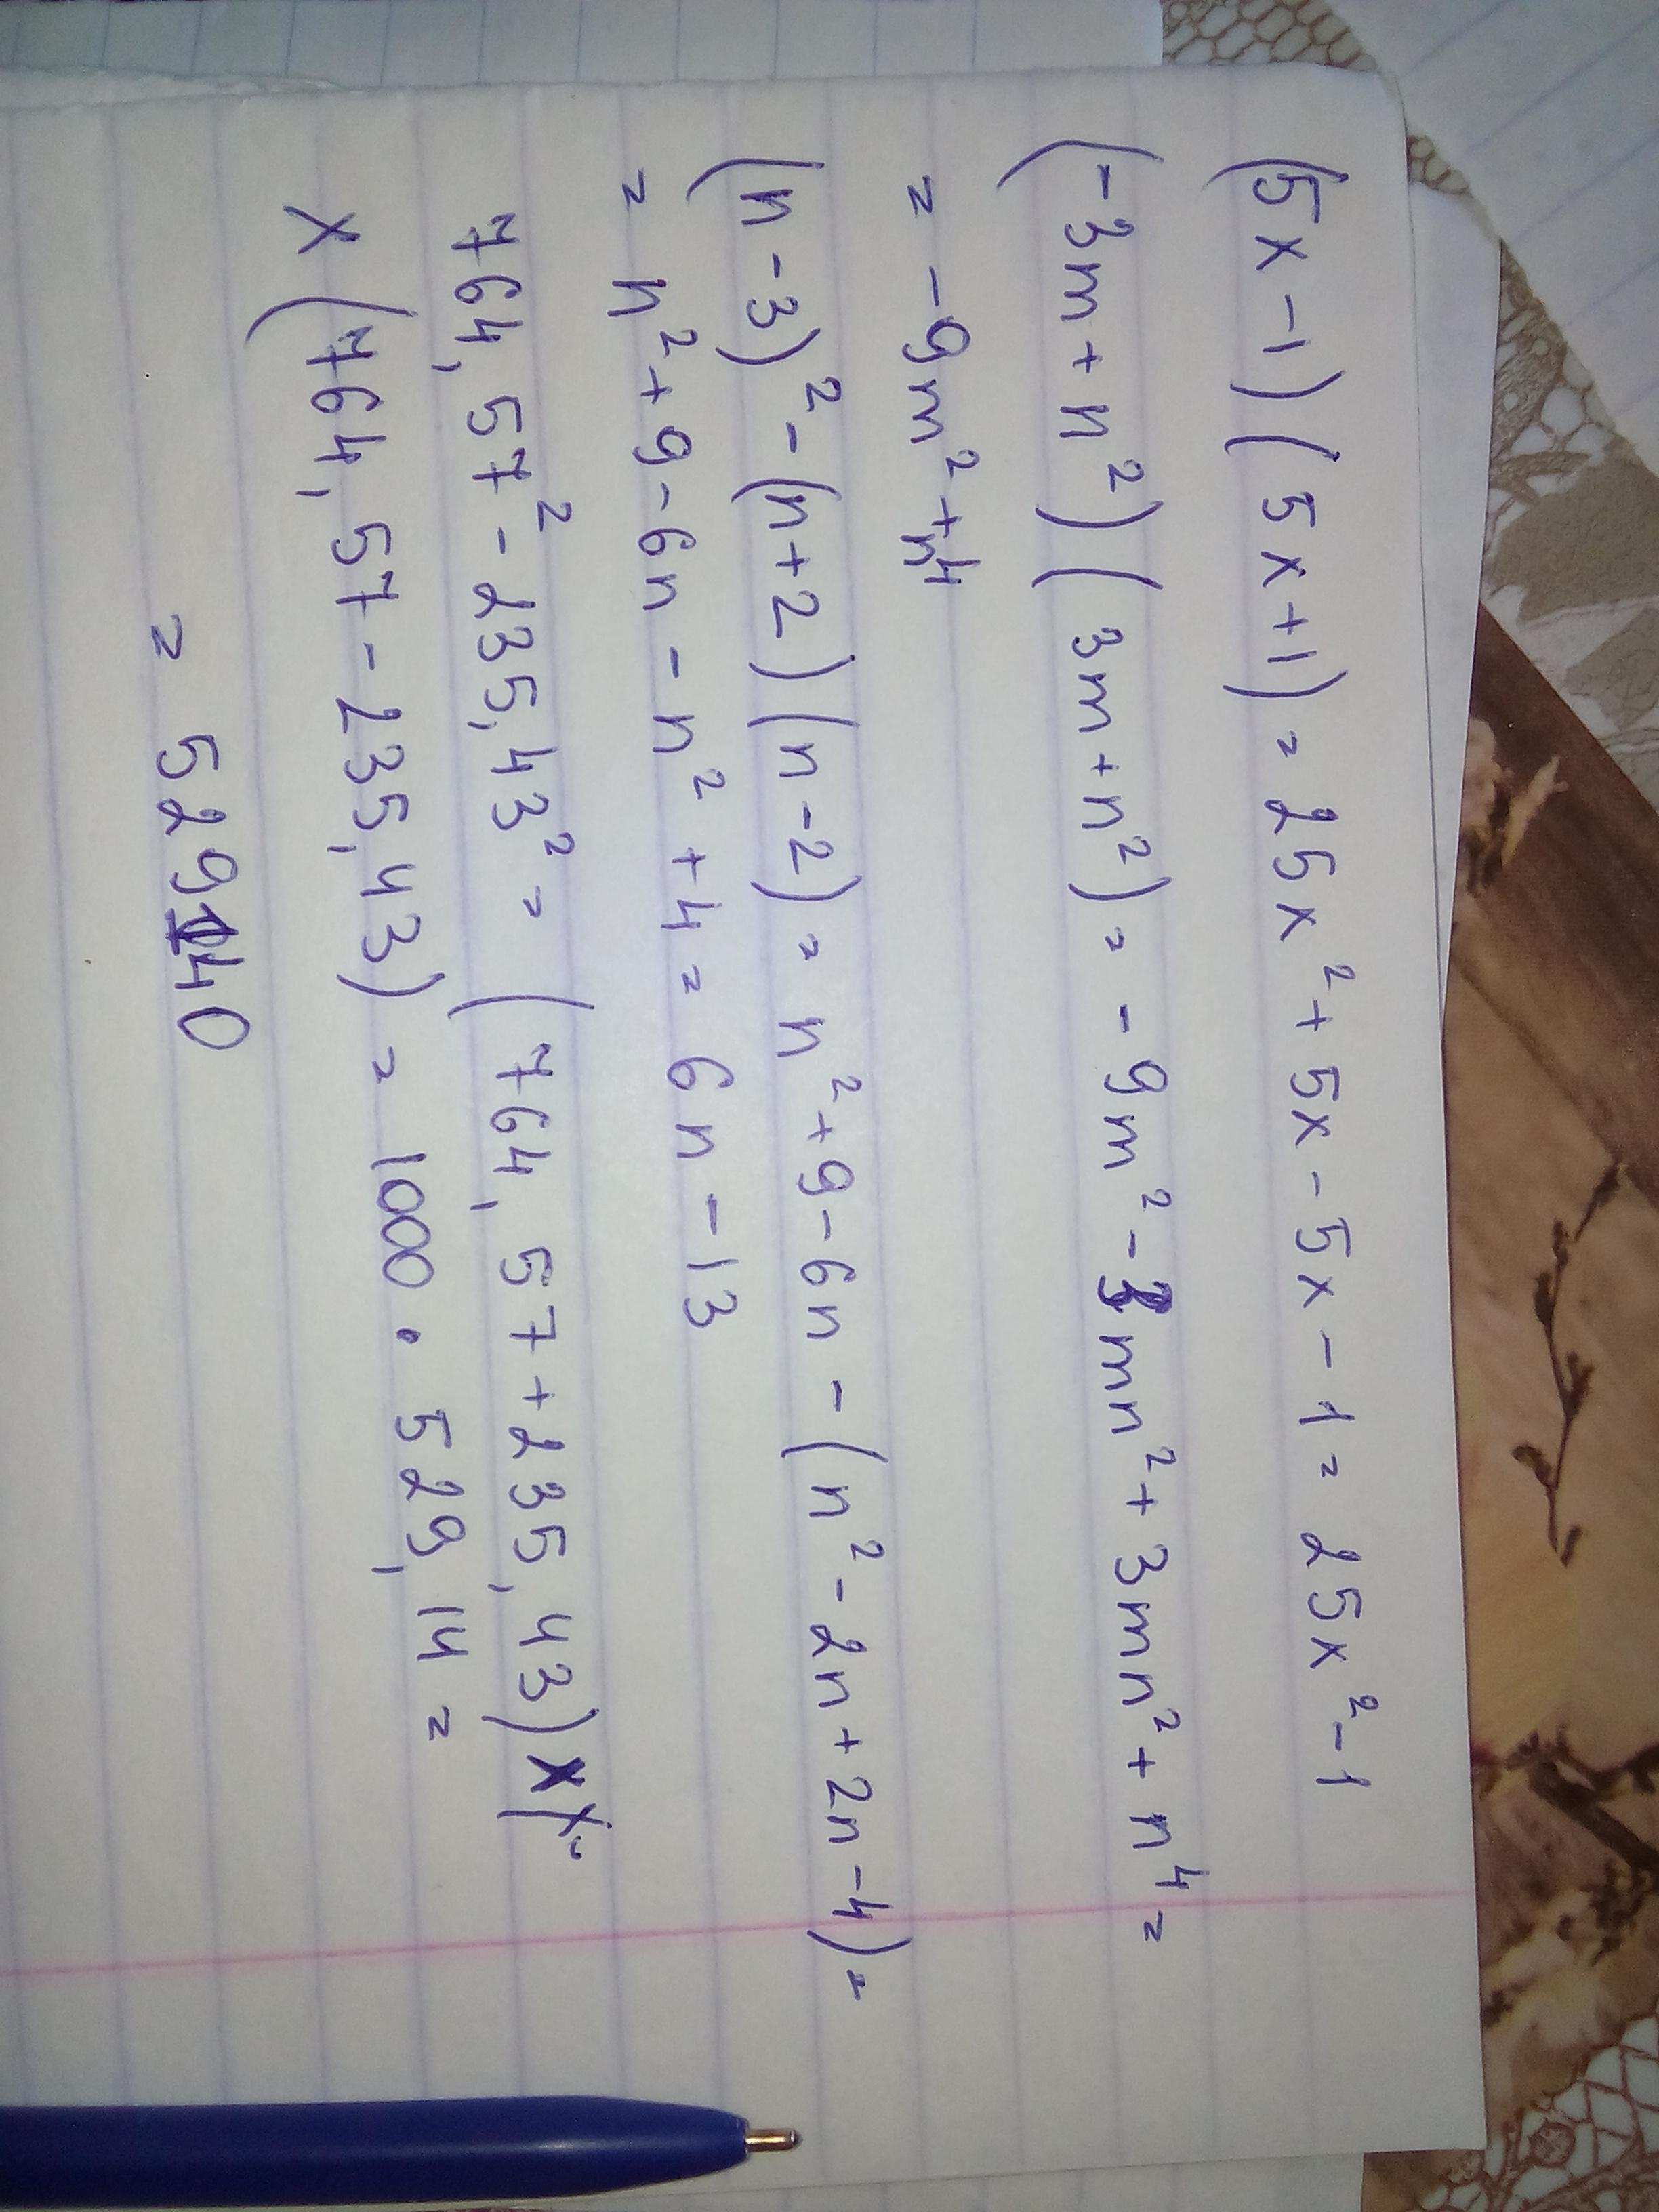 (5x-1)(5x+1) = 25x²+5x-5x-1 = 25x²-1
(-3m+n²)(3m+n²) = -9m²-3mn²+3mn²+n⁴ =
= -9m²+n⁴
(n-3)²-(n+2)(n-2) = n²+9-6n-(n²-2n+2n-4) =
= n²+9-6n-n²+4 = 6n-13
764,57²-235,43² = (764,57+235,43)x
x(764,57-235,43) = 1000 · 529,14 =
= 529140